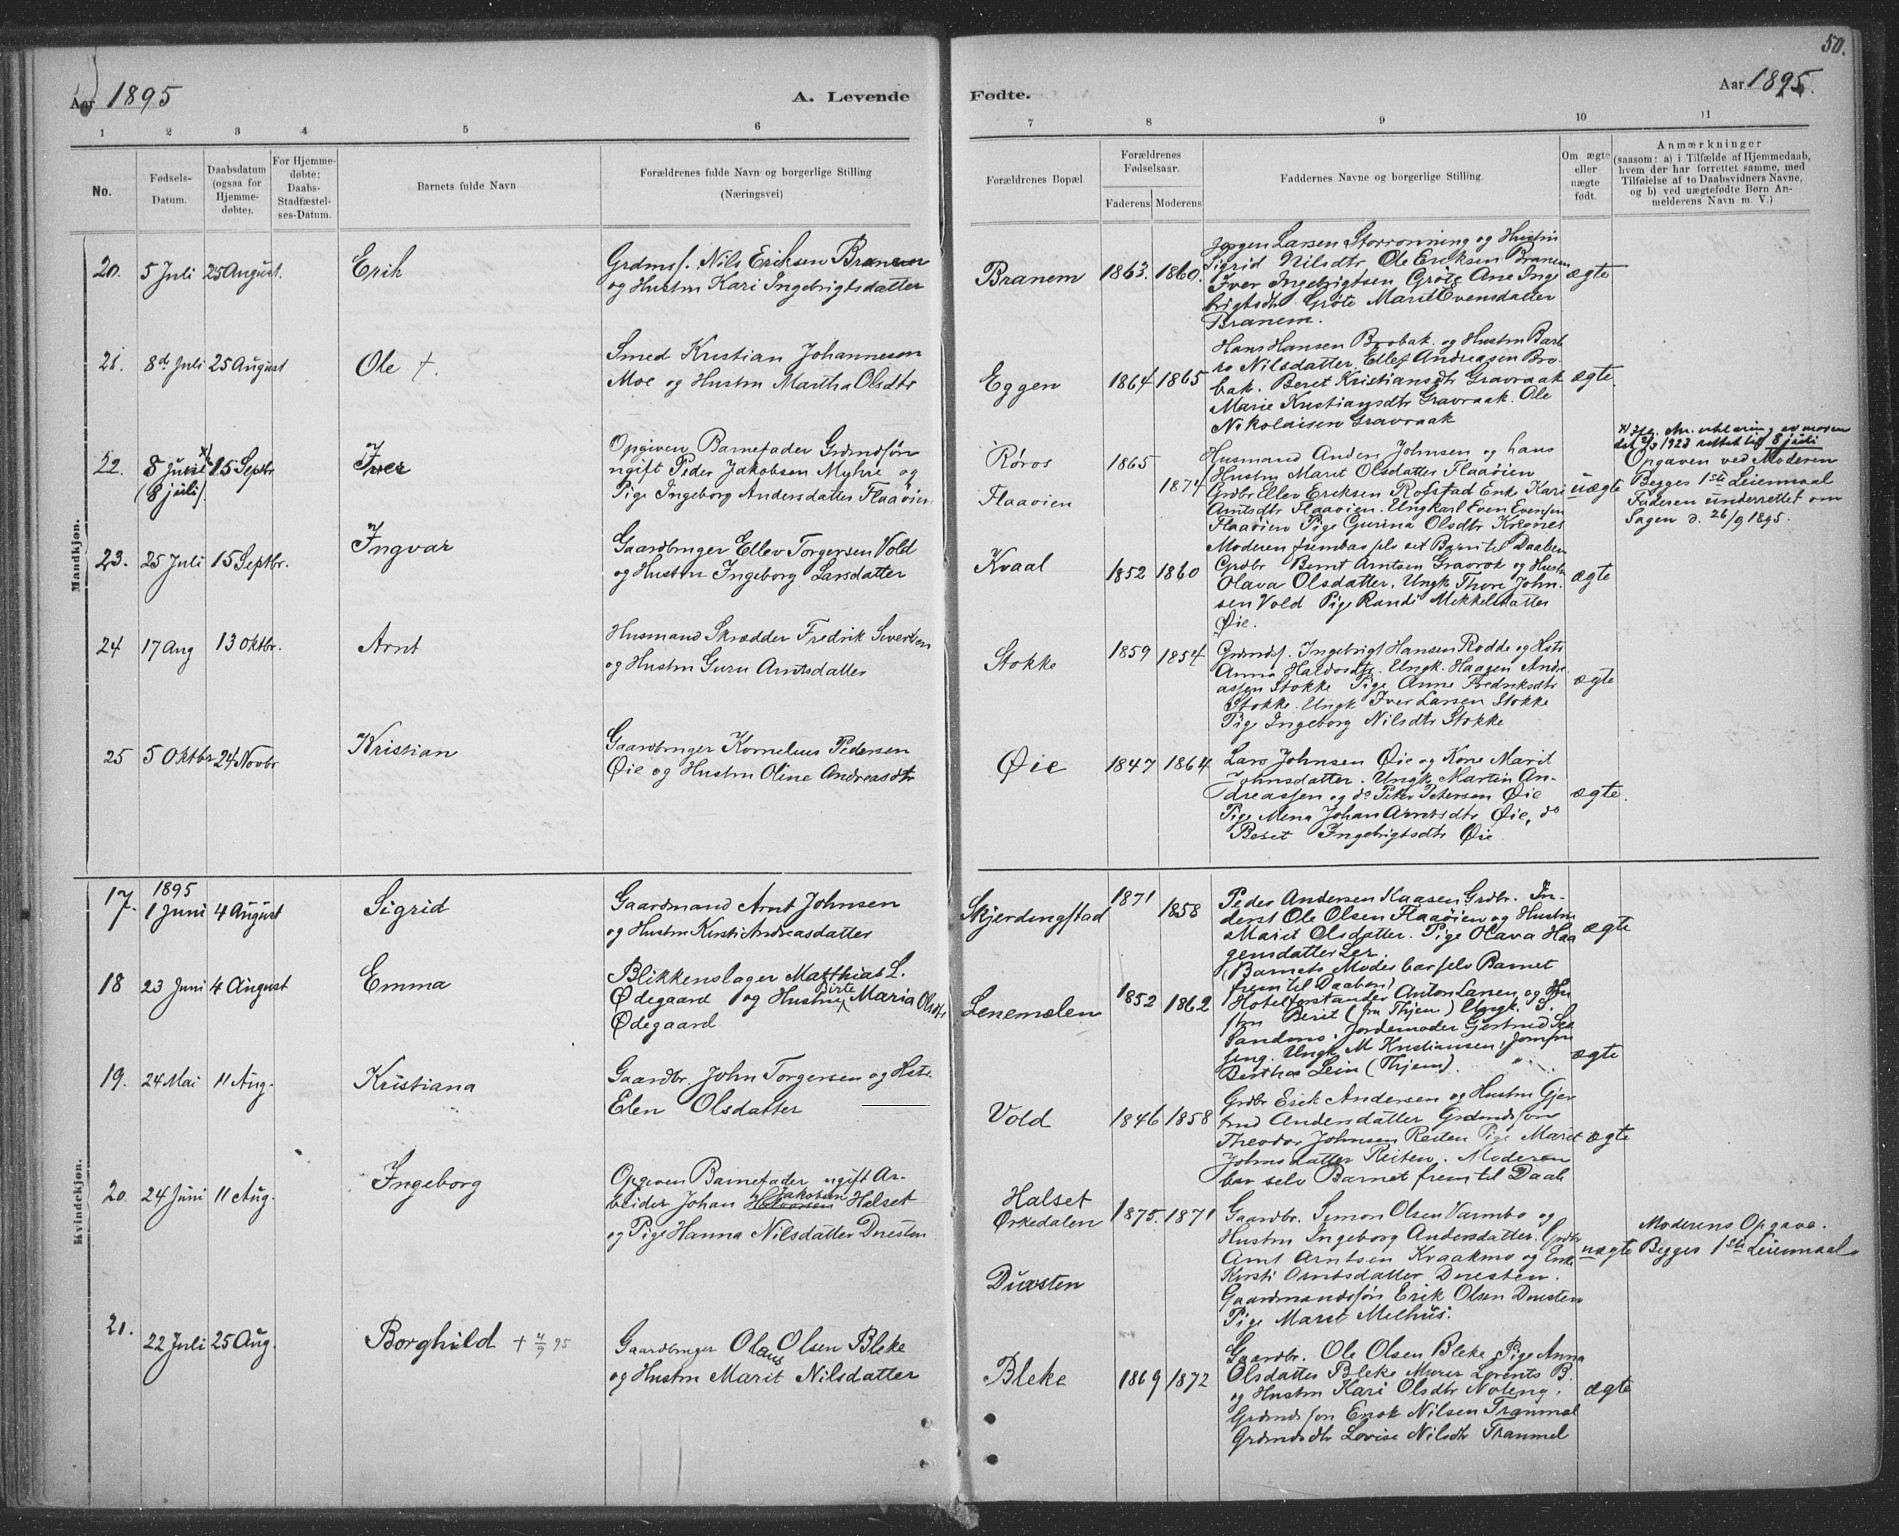 50.
Aar 1895
A. Levende
Fødte.
Aar 1895.
1 2 3 4 5 6 7 8 9 10 11
No.
Fødsels-
Datum.
Daabsdatum
(ogsaa for
Hjemme-
døbte).
For Hjemme-
døbte:
Daabs-
Stadfæstel-
ses-Datum.
Barnets fulde Navn
Forældrenes fulde Navn og borgerlige Stilling
(Næringsvei)
Forældrenes Bopæl.
Forældrenes
Fødselsaar.
Faderens Moderens
Faddernes Navne og borgerlige Stilling.
Om ægte
eller
uægte
født.
Anmærkninger
(saasom: a) i Tilfælde af Hjemmedaab,
hvem der har forrettet samme, med
Tilføielse af to Daabsvidners Navne,
og b) ved uægtefødte Børn An-
melderens Navn m. V.)
Mandkjøn.
20. 5 Juli 25 August. Erik
Grdmsf. Nils Eriksen Branem
og Hustru Kari Ingebrigtsdatter
Branem 1863. 1860.
Jørgen Larsen Storrønning og Hustru
Sigrid Nilsdtr Ole Eriksen Branem
Iver Ingebrigtsen Grøte Ane Inge
brigtsdtr Grøte Marit Evensdatter
Branem.
ægte
21. 8d Juli 25 August Ole +.
Smed Kristian Johannesen
Moe og Hustru Martha Olsdtr
Eggen 1864 1865
Hans Hansen Brobak. og Hustru Barb
ro Nilsdatter. Ellef Andreasen Bro-
bak. Beret Kristiansdtr Gravraak
Marie Kristiansdtr Gravraak. Ole
Nikolaisen Gravraak
ægte.
22. 8 Juni x) 15 Septbr Iver
(8 juli).
Opgiven Barnefader Grdmdsøn
ugift Peder Jakobsen Myhre og
Pige Ingeborg Andersdatter Flaaøien
Røros 1865
Flaaøien 1874
Husmand Anders Johnsen og hans
Hustru Marit Olsdatter Flaaøien
Grdbr Ellev Eriksen Rofstad Enke Kari
Arntsdtr Flaaøien. Ungkarl Even Evensen
Flaaøien Pige Gurina Olsdtr
Moderen frembar selv sit Barn til Daaben
uægte
x) Iflg. erklæring av moren
dat 2/3 1923 rettet til 8 juli
Opgaven ved Moderen
Begges 1ste Leiermaal
Faderen underrettet om
Sagen d. 26/9 1895.
23. 25 Juli 15 Septbr. Ingvar
Gaardbruger Ellev Torgersen Vold
og Hustru Ingeborg Larsdatter
Kvaal 1852 1860
Grdbr Bernt Arntsen Gravrok og Hustru
Olava Olsdatter. Ungk. Thore John-
sen Vold Pige Randi Mikkelsdatter
Øie.
ægte
24 17 Aug 13 Oktbr. Arnt
Husmand Skrædder Fredrik Sivertsen
og Hustru Guru Arntsdatter
Stokke 1859 1854
Grdmdsf. Ingebrigt Hansen Rodde og Hstr
Anna Haldosdtr. Ungk. Haagen Andr
easen Stokke Pige Anne Fredriksdtr
Stokke. Ungk Iver Larsen Stokke
Pige Ingeborg Nilsdtr Stokke
ægte
25 5 Oktbr 24 Novbr Kristian
Gaardbruger Kornelius Pedersen
Øie og Hustru Oline Andreasdtr
Øie 1847 1864
Lars Johnsen Øie og Kone Marit
Johnsdatter. Ungk Martin An-
dreassen og do Peter Petersen Øie
Pige Mena Johan Arntsdtr Øie, do
Beret Ingebrigtsdtr Øie.
ægte.
Kvindekjøn.
1895
17. 1 Juni 4 August Sigrid
Gaardmand Arnt Johnsen
og Hustru Kirsti Andreasdatter
Skjerdingstad 1871 1858
Peder Andersen Kaasen Grdbr. In-
derst Ole Olsen Flaaøien og Hustru
Marit Olsdatter. Pige Olava Haa
gensdatter Ler.
(Barnets Moder bar selv Barnet
frem til Daaben)
ægte
18 23 Juni 4 August Emma
Blikkenslager Matthias L.
Ødegaard og Hustru Dirte Maria Olsdtr
Ødegaard
Lenemælen 1852 1862
Hotelforstander Anton Larsen og Hu
stru Berit (fra Thjem) Ungk. I.
Sandmo, Jordemoder Gjertrud
Ungk M Kristiansen, Jomfru
Bertha Lein (Thjem).
ægte
19. 24 Mai 11 Aug. Kristiana
Gaardbr. John Torgersen og Hstr.
Elen Olsdatter
Vold 1846 1858
Grdbr Erik Andersen og Hustru Gjer
trud Andersdatter Grdmdsøn
Theodor Johnsen Reiten Pige Marit
Johnsdatter Reiten. Moderen
bar selv Barnet frem til Daab
ægte
20. 24 Juni 11 Aug. Ingeborg
Opgiven Barnefader ugift Ar-
beider Johan Jakobsen Halset
og Pige Hanna Nilsdatter Duesten
Halset
Ørkedalen
Duesten
1875. 1871
Gaardbr. Simon Olsen Varmbo og
Hustru Ingeborg Andersdatter. Grdbr
Arnt Arntsen Kraakmo og Enke
Kirsti Arntsdatter Duesten.
Gaardmandssøn Erik Olsen Duesten
Pige Marit Melhus.
uægte
Moderens Opgave.
Begges 1ste Leiermaal
21. 22 Juli 25 Aug. Borghild + 4/9 95
Gaardbruger Olaus Olsen Bleke
og Hustru Marit Nilsdatter
Bleke 1869 1872
Gaardbr. Ole Olsen Bleke, Pige Anna
Olsdatter Bleke Murer Lorents B.
og Hustru Kari Olsdtr Noteng.
Grdmdsøn Enok Nilsen Tranmæl
Grdmdsdtr Lovise Nilsdtr Tranmel
ægte